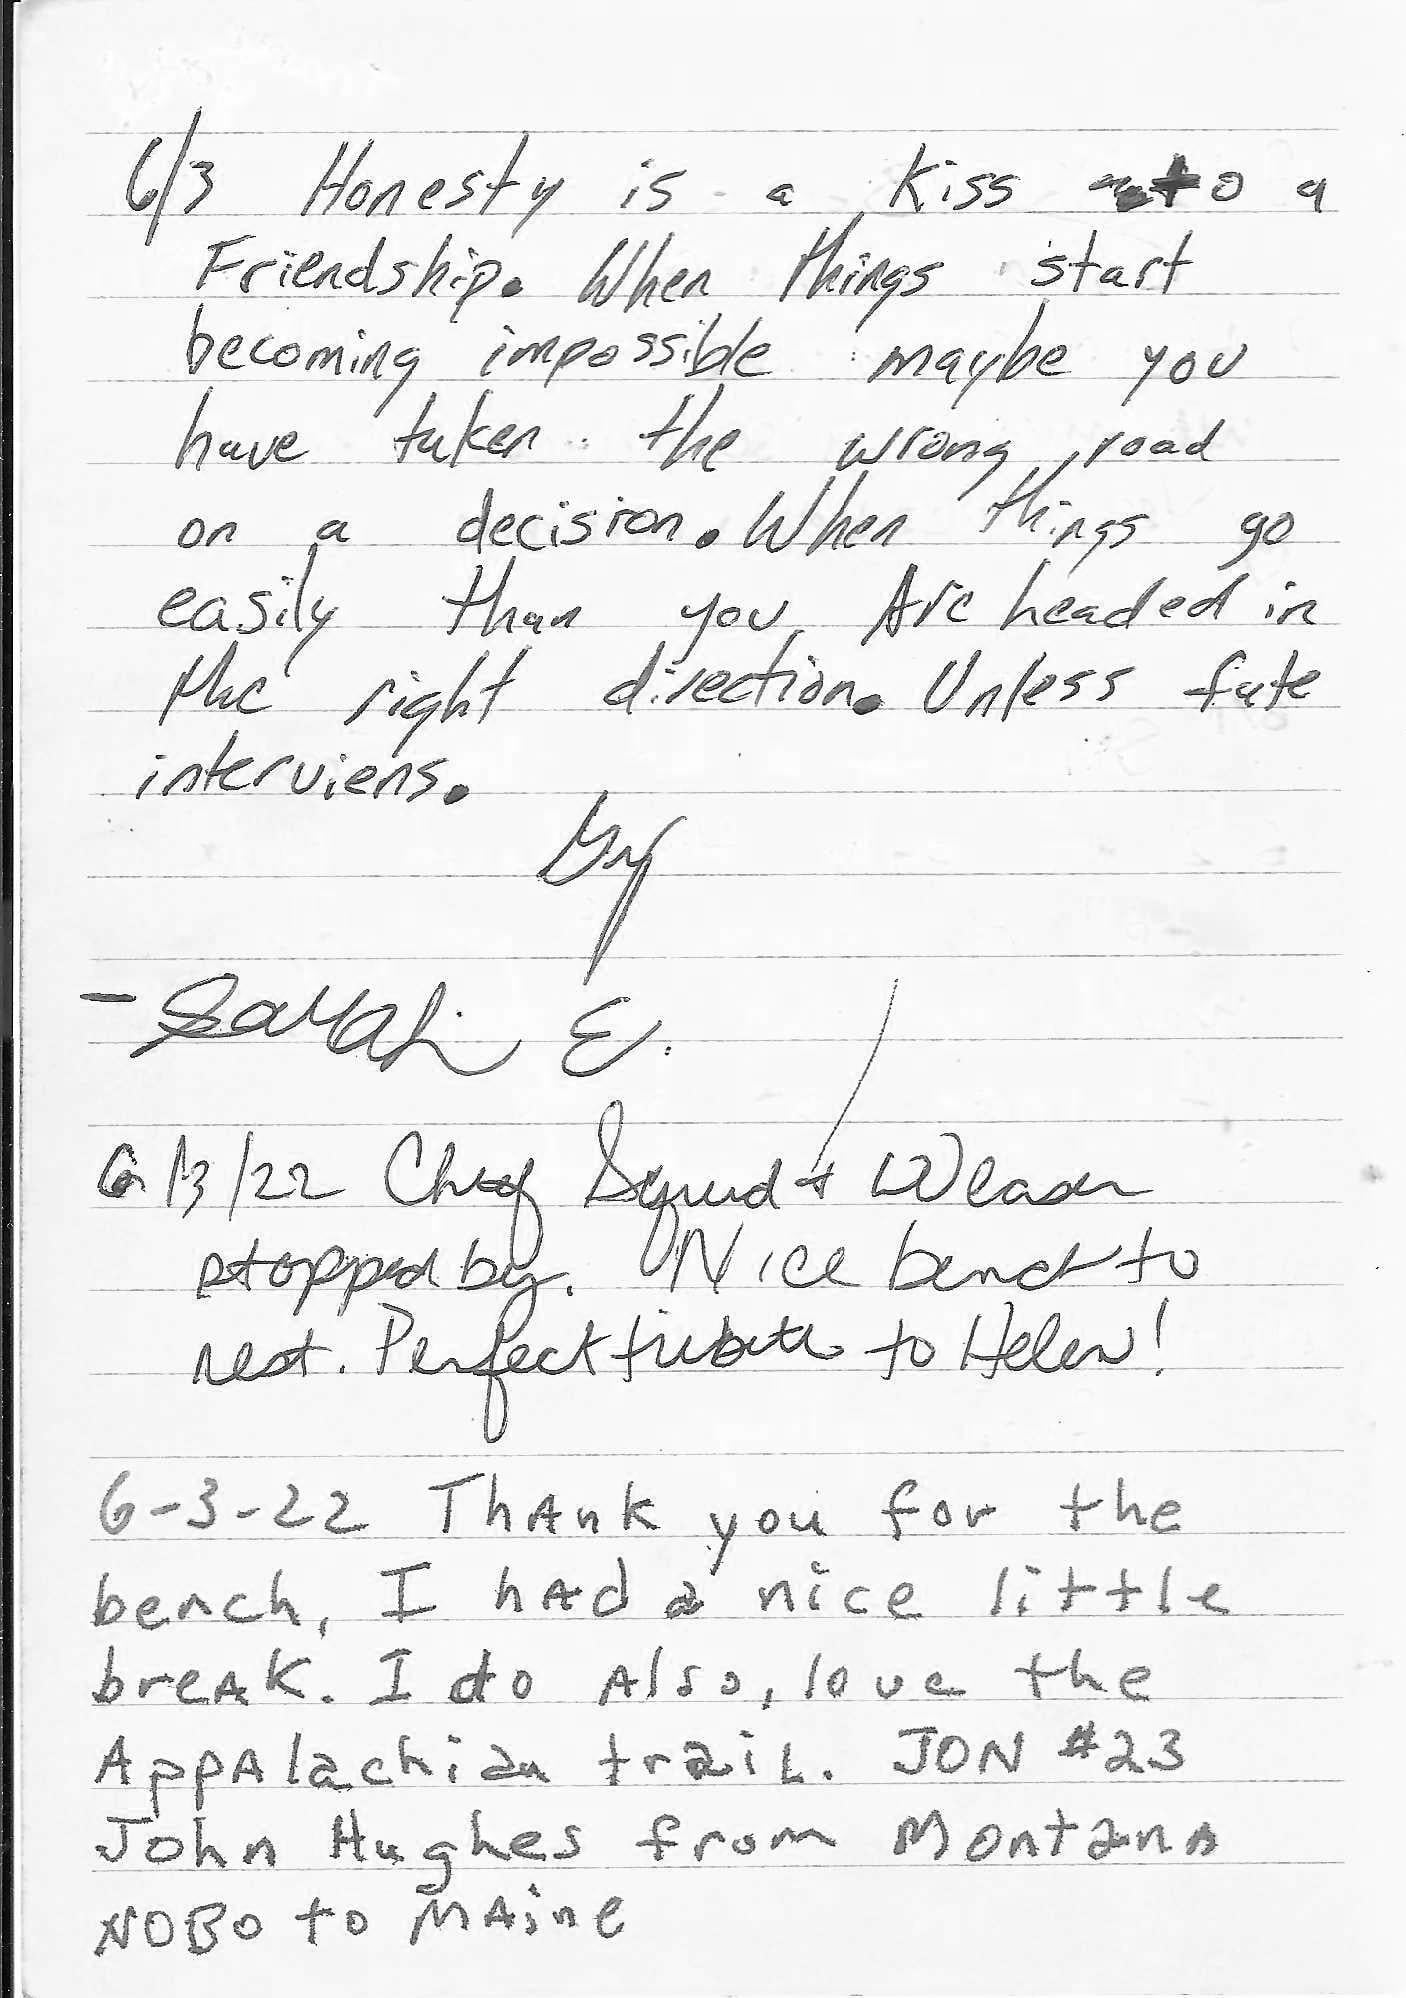 6/3 Honesty is a Kiss to a
Friendship. When things start
becoming impossible maybe you
have taken the wrong road
on a decision. When things go
easily than you Are headed in
the right direction. Unless fate
interviens.
- Sarah E.
6/3/22 Chef Squid + Weasn
stopped by. Nice bench to
rest. Perfect tribute to Helen!
6-3-22 Thank you for the
bench, I had a nice little
break. I do Also, love the
Appalachian trail. JON #23
John Hughes from Montana
NOBO to Maine